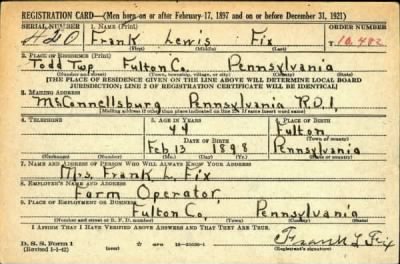 REGISTRATION CARD—(Men born on or after February 17, 1897 and on or before December 31, 1921)
SERIAL NUMBER 1. NAME (Print) ORDER NUMBER
Frank Lewis Fix T 10,482
(First) (Middle) (Last)
2. PLACE OF RESIDENCE (Print)
Todd Twp Fulton Co. Pennsylvania
(Number and street) (Town, township, village, or city) (County) (State)
[THE PLACE OF RESIDENCE GIVEN ON THE LINE ABOVE WILL DETERMINE LOCAL BOARD
JURISDICTION; LINE 2 OF REGISTRATION CERTIFICATE WILL BE IDENTICAL]
3. MAILING ADDRESS
McConnellsburg Pennsylvania R.D.1.
[Mailing address if other than place indicated on line 2. If same insert word same]
4. TELEPHONE 5. AGE IN YEARS 6. PLACE OF BIRTH
44 Fulton
DATE OF BIRTH (Town or county)
Feb 13 1898 Pennsylvania
(Exchange) (Number) (Mo.) (Day) (Yr.) (State or country)
7. NAME AND ADDRESS OF PERSON WHO WILL ALWAYS KNOW YOUR ADDRESS
Mrs. Frank L. Fix
8. EMPLOYER'S NAME AND ADDRESS
Farm Operator
9. PLACE OF EMPLOYMENT OR BUSINESS
Fulton Co. Pennsylvania
(Number and street or R. F. D. number) (Town) (County) (State)
I AFFIRM THAT I HAVE VERIFIED ABOVE ANSWERS AND THAT THEY ARE TRUE.
D. S. S. Form 1
(Revised 1-1-42) GPO Frank L Fix
(Registrant's signature)